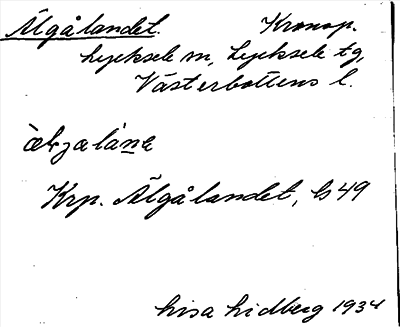 Älgålandet. Kronop.
Lycksele m, Lycksele tg,
Västerbottens l.
Krp. Älgålandet, b 49
Lisa Lidberg 1934